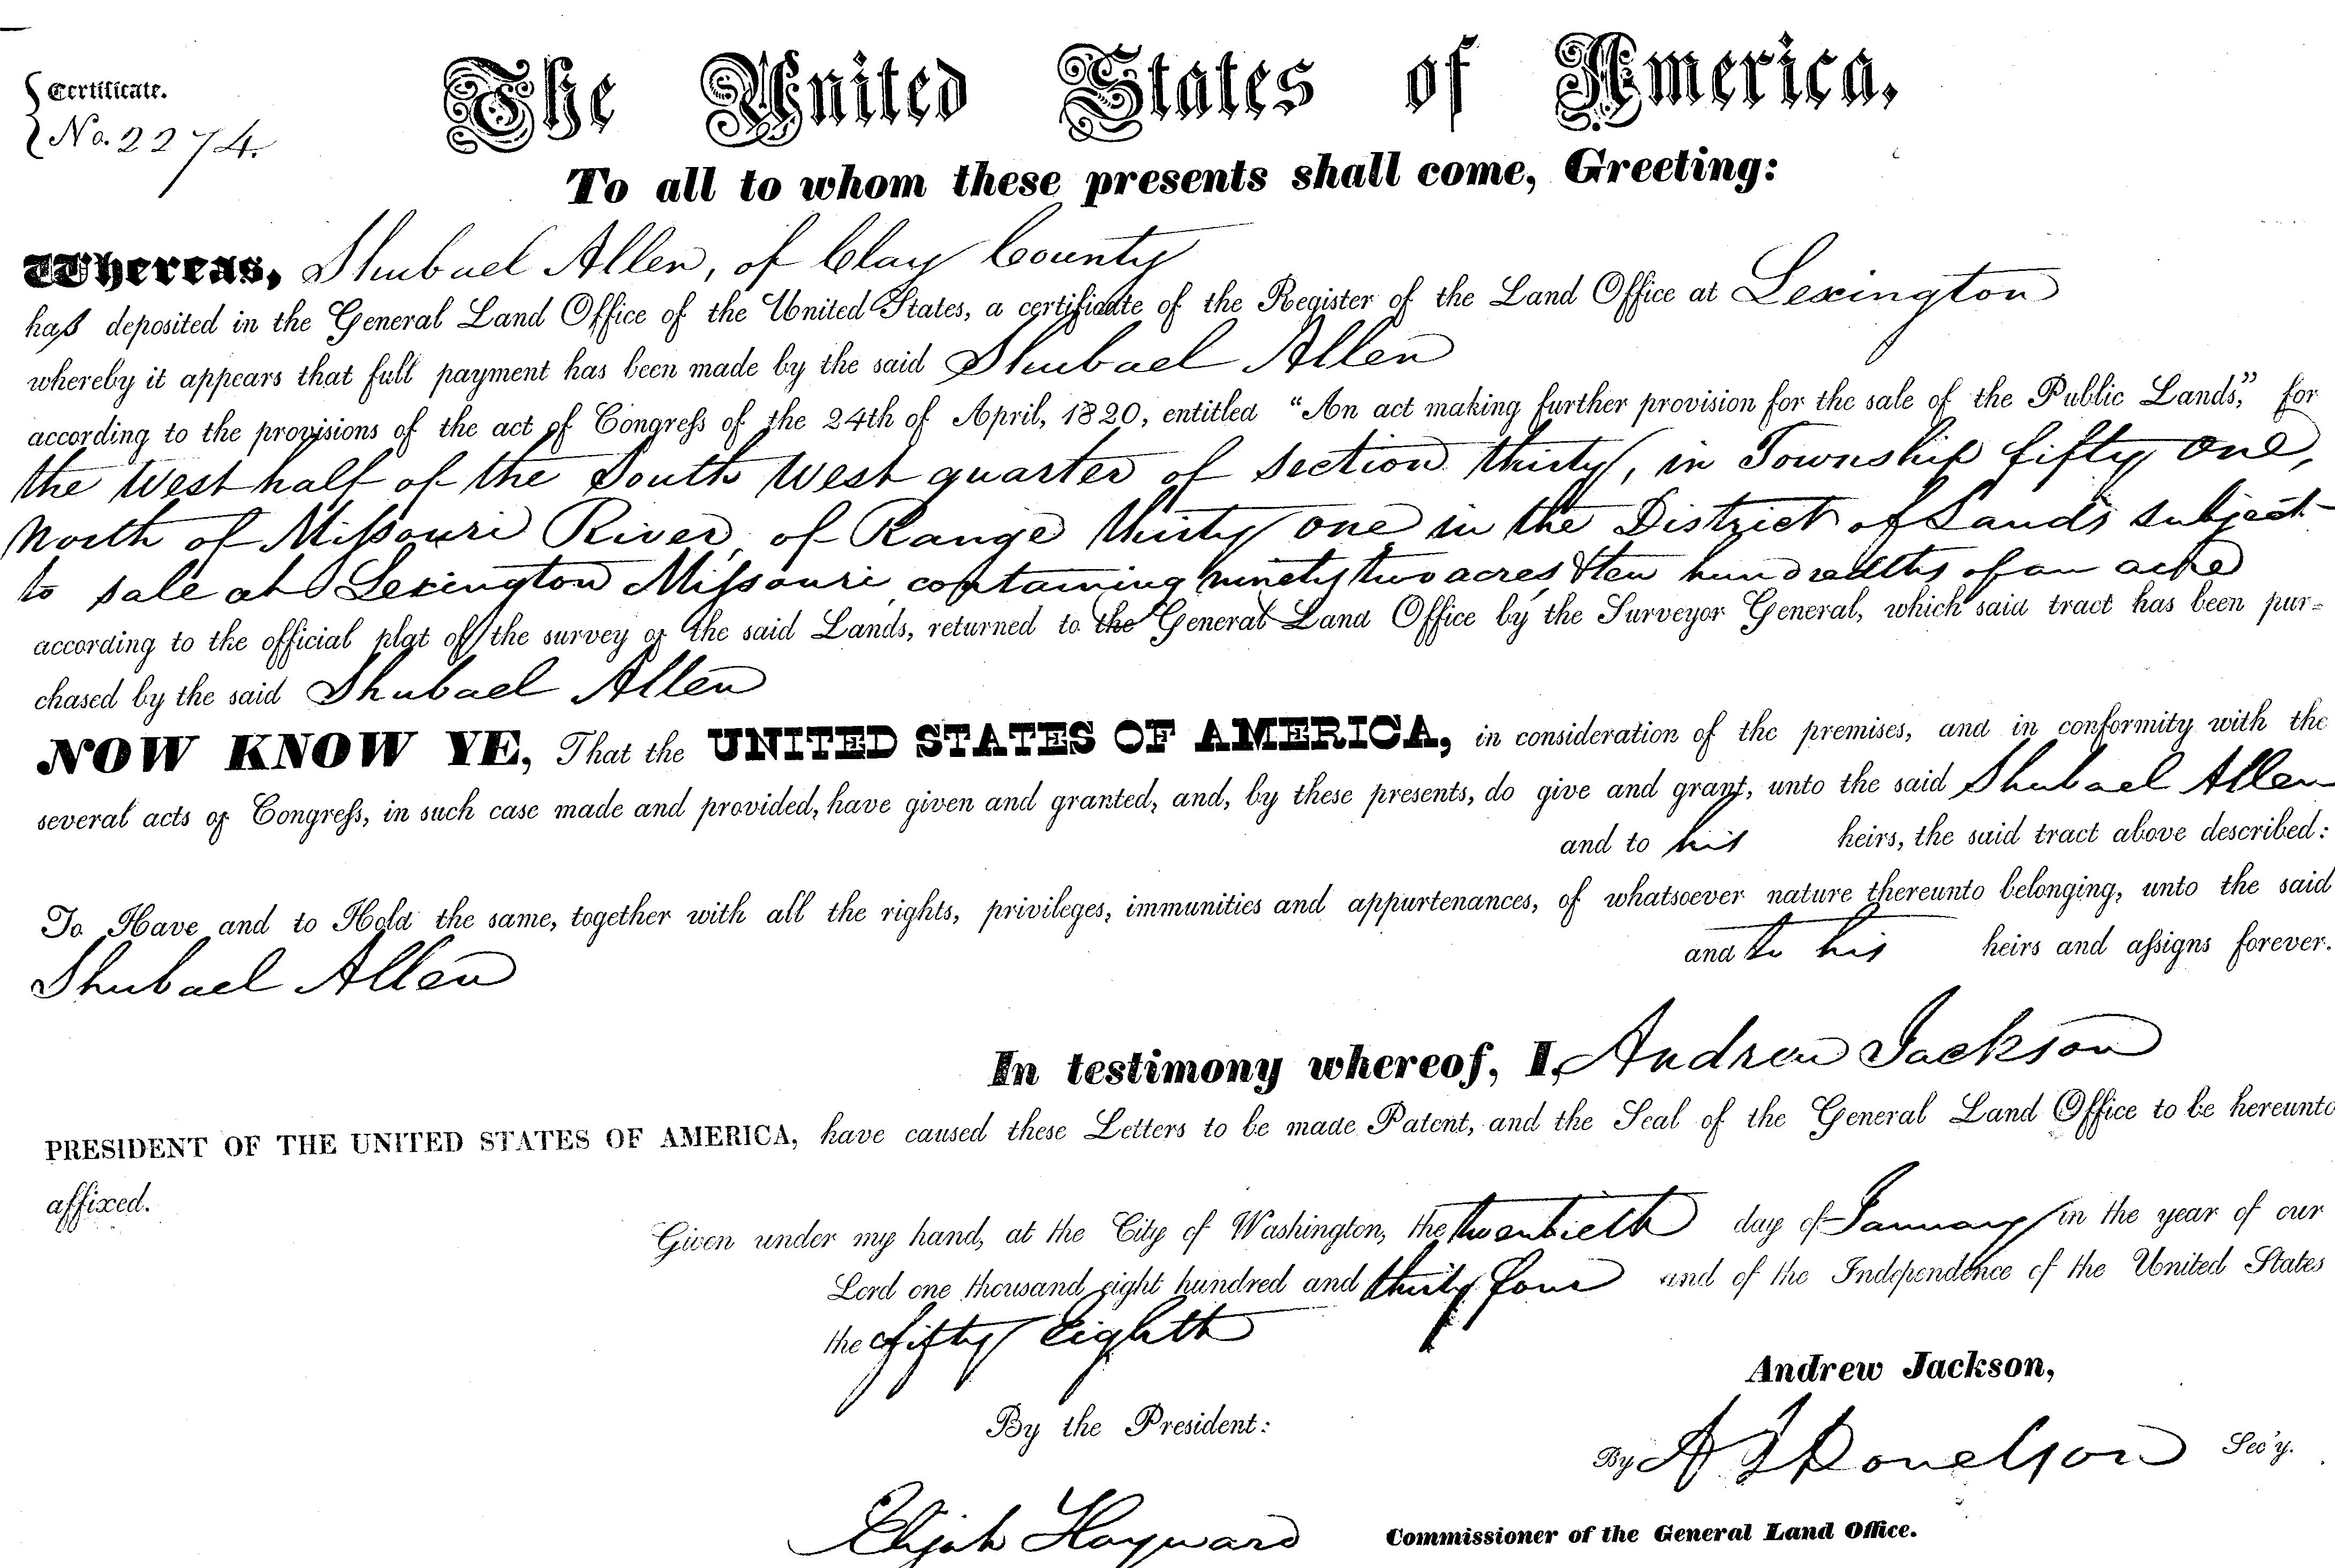 The United States of America,
Certificate.
No. 2274.
To all to whom these presents shall come, Greeting:
Whereas, Shubael Allen, of Clay County
has deposited in the General Land Office of the United States, a certificate of the Register of the Land Office at Lexington
whereby it appears that full payment has been made by the said Shubael Allen
according to the provisions of the act of Congress of the 24th of April, 1820, entitled "An act making further provision for the sale of the Public Lands," for
the West half of the South West quarter of Section thirty, in Township fifty one,
North of Missouri River, of Range thirty one in the District of Lands subject
to sale at Lexington Missouri, containing ninety two acres, & ten hundredths of an acre
according to the official plat of the survey of the said Lands, returned to the General Land Office by the Surveyor General, which said tract has been pur-
chased by the said Shubael Allen
NOW KNOW YE, That the UNITED STATES OF AMERICA, in consideration of the premises, and in conformity with the
several acts of Congress, in such case made and provided, have given and granted, and, by these presents, do give and grant, unto the said Shubael Allen
and to his heirs, the said tract above described:
To Have and to Hold the same, together with all the rights, privileges, immunities and appurtenances, of whatsoever nature thereunto belonging, unto the said
Shubael Allen and to his heirs and assigns forever.
In testimony whereof, I, Andrew Jackson
PRESIDENT OF THE UNITED STATES OF AMERICA, have caused these Letters to be made Patent, and the Seal of the General Land Office to be hereunto
affixed.
Given under my hand, at the City of Washington, the twentieth day of January in the year of our
Lord one thousand eight hundred and thirty four and of the Independence of the United States
the fifty eighth
Andrew Jackson,
By the President:
By A J Donelson Sec'y.
Elijah Hayward Commissioner of the General Land Office.